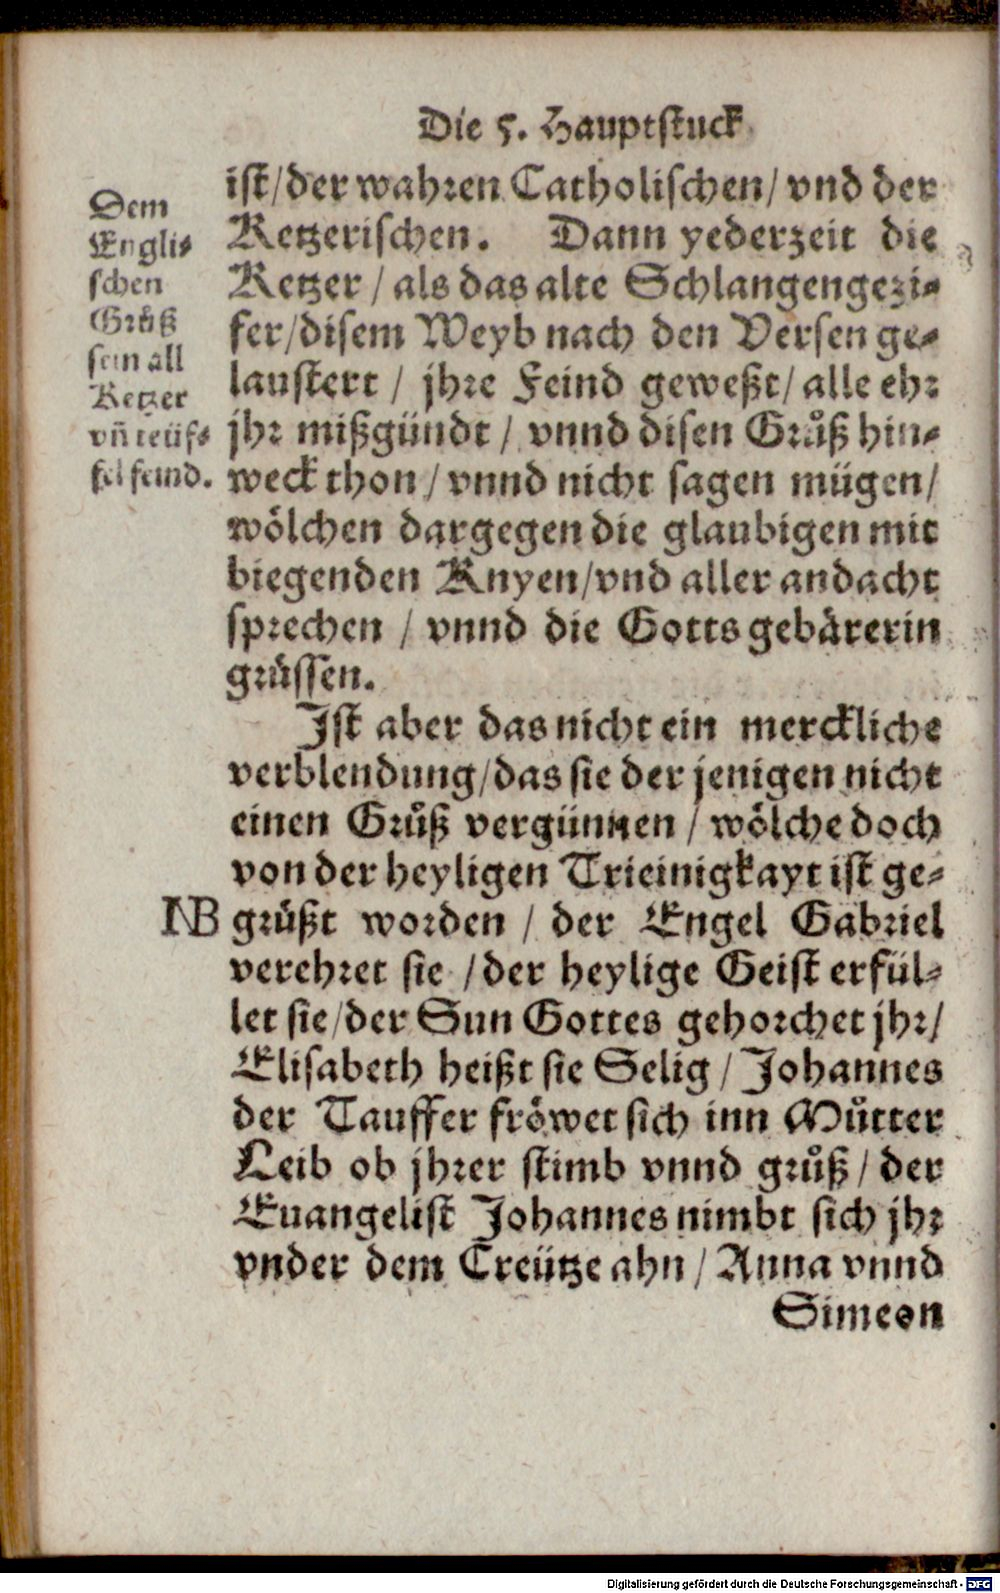 Die 5. Hauptstuck
Dem
Engli-
schen
Grůß
sein all
Ketzer
vñ teüf-
fel feind.
ist/der wahren Catholischen/ vnd der
Ketzerischen. Dann yederzeit die
Ketzer / als das alte Schlangengezi-
fer/disem Weyb nach den Versen ge-
laustert / jhre Feind geweßt/ alle ehr
jhr mißgündt / vnnd disen Grůß hin-
weck thon / vnnd nicht sagen mügen/
wölchen dargegen die glaubigen mit
biegenden Knyen/vnd aller andacht
sprechen / vnnd die Gotts gebärerin
grüssen.
Ist aber das nicht ein merckliche
verblendung/das sie der jenigen nicht
einen Grůß vergünnen / wölche doch
von der heyligen Trieinigkayt ist ge-
NB grüßt worden / der Engel Gabriel
verehret sie / der heylige Geist erfül-
let sie/der Sun Gottes gehorchet jhr/
Elisabeth heißt sie Selig / Johannes
der Tauffer fröwet sich inn Můtter
Leib ob jhrer stimb vnnd grůß / der
Euangelist Johannes nimbt sich jhr
vnder dem Creütze ahn / Anna vnnd
Simeon
Digitalisierung gefördert durch die Deutsche Forschungsgemeinschaft - DFG